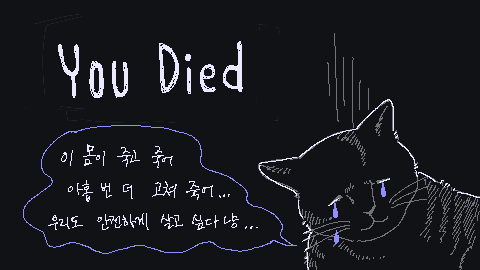 You Died
이 몸이 죽고 죽어
아홉 번 더 고쳐 죽어...
우리도 안전하게 살고 싶다냥...